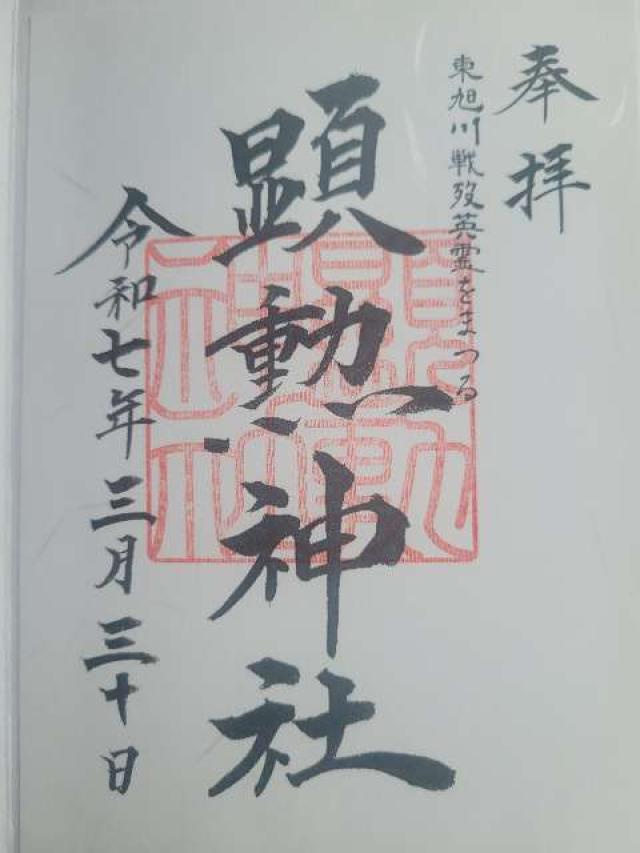 奉拝
東旭川戦歿英霊をまつる
顕勲神社
令和七年三月三十日